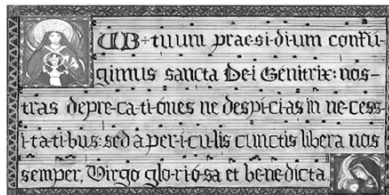 SUB tuum prae-si-di-um confu-
gimus sancta Dei Génitrix: nos-
tras depre-ca-ti-ónes ne despíci-as in ne-cess
i-ta-ti-bus: sed a per-i-cu-lis cunctis líbera nos
semper, Virgo glo-ri-ó-sa et be-ne-dícta.